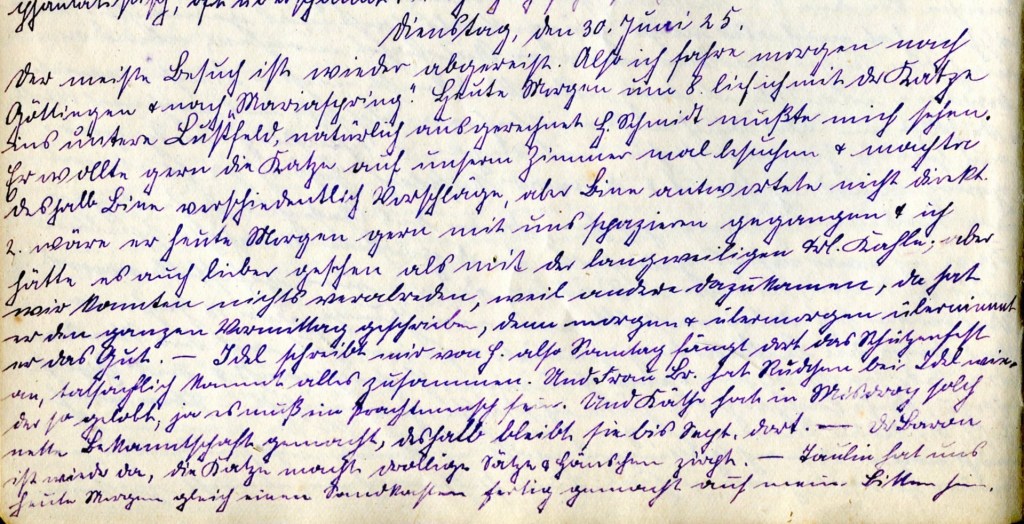 phantastisch, oft
Dienstag, den 30. Juni 25.
Der meiste Besuch ist wieder abgereist. Also ich fahre morgen nach
Göttingen & nach "Mariaspring". Heute Morgen um 8. lief ich mit der Katze
ins untere Lustfeld, natürlich ausgerechnet H. Schmidt mußte mich sehen.
Er wollte gern die Katze auf unserm Zimmer mal besuchen & machte
deshalb Bine verschiedentlich Vorschläge, aber Bine antwortete nicht direkt.
2. wäre er heute Morgen gern mit uns spazieren gegangen & ich
hätte es auch lieber gesehen als mit der langweiligen Frl. Kahle; aber
wir konnten nichts verabreden, weil andere dazukamen, da hat
er den ganzen Vormittag geschrieben, denn morgen & übermorgen übernimmt
er das Gut. — Idel schreibt mir von H. also Sonntag fängt dort das Schützenfest
an, tatsächlich kommt alles zusammen. Und Frau Br. hat Rudchen bei Idel wie-
der so gelobt, ja es muß ein Prachtmensch sein. Und Käthe hat in Misdroy solch
nette Bekanntschaft gemacht, deshalb bleibt sie bis Sept. dort. — Der Baron
ist wieder da, die Katze macht drollige Sätze & Hänschen ziept. — Paulin hat uns
heute Morgen gleich einen Sandkasten fertig gemacht auf mein Bitten hin.